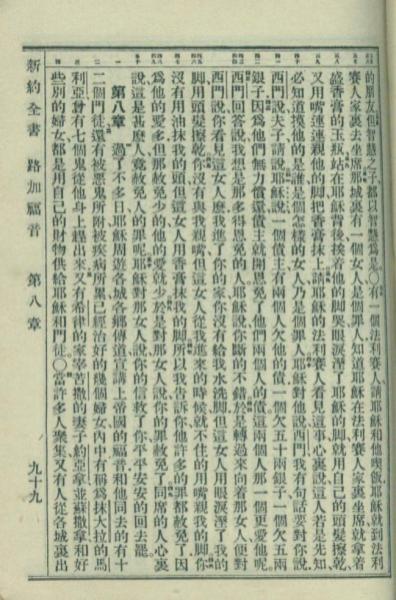 的朋友但智慧之子都以智慧爲是〇有一個法利賽人請耶穌和他喫飯耶穌就到法利
賽人家裏去坐席那城裏有一個女人是個罪人知道耶穌在法利賽人家裏坐席就拿着
盛香膏的玉瓶站在耶穌背後挨着他的脚哭眼淚溼了耶穌的脚就用自己的頭髮擦乾
又用嘴連連親他的脚把香膏抹上請耶穌的法利賽人看見這事心裏說這人若是先知
必知道摸他的是誰是個怎樣的女人乃是個罪人耶穌對他說西門我有句話要對你說
西門說夫子請說耶穌說一個債主有兩個人欠他的債一個欠五十兩銀子一個欠五兩
銀子因爲他們無力償還債主就開恩免了他們兩個人的債這兩個人那一個更愛他呢
西門回答說我想是那多得恩免的人耶穌說你斷的不錯於是轉過來向着那女人便對
西門說你看見這女人麽我進了你的家你沒有給我水洗脚但這女人用眼淚溼了我的
脚用頭髮擦乾你沒有與我親嘴但這女人從我進來的時候就不住的用嘴親我的脚你
沒有用油抹我的頭但這女人用香膏抹我的脚所以我告訴你他許多的罪都赦免了因
爲他的愛多但那赦免少的他的愛就少於是對那女人說你的罪赦免了同席的人心裏
說這是甚麽人竟赦免人的罪呢耶穌對那女人說你的信救了你平平安安的回去罷
第八章 過了不多日耶穌周遊各城各鄉傳道宣講上帝國的福音和他同去的有十
二個門徒還有被惡鬼所附被疾病所累已經治好的幾個婦女內中有稱爲抹大拉的馬
利亞曾有七個鬼從他身上趕出來又有希律的家宰苦撒的妻子約亞拿並蘇撒拿和好
些別的婦女都是用自己的財物供給耶穌和門徒〇當許多人聚集又有人從各城裏出
新約全書 路加福音 第八章 九十九